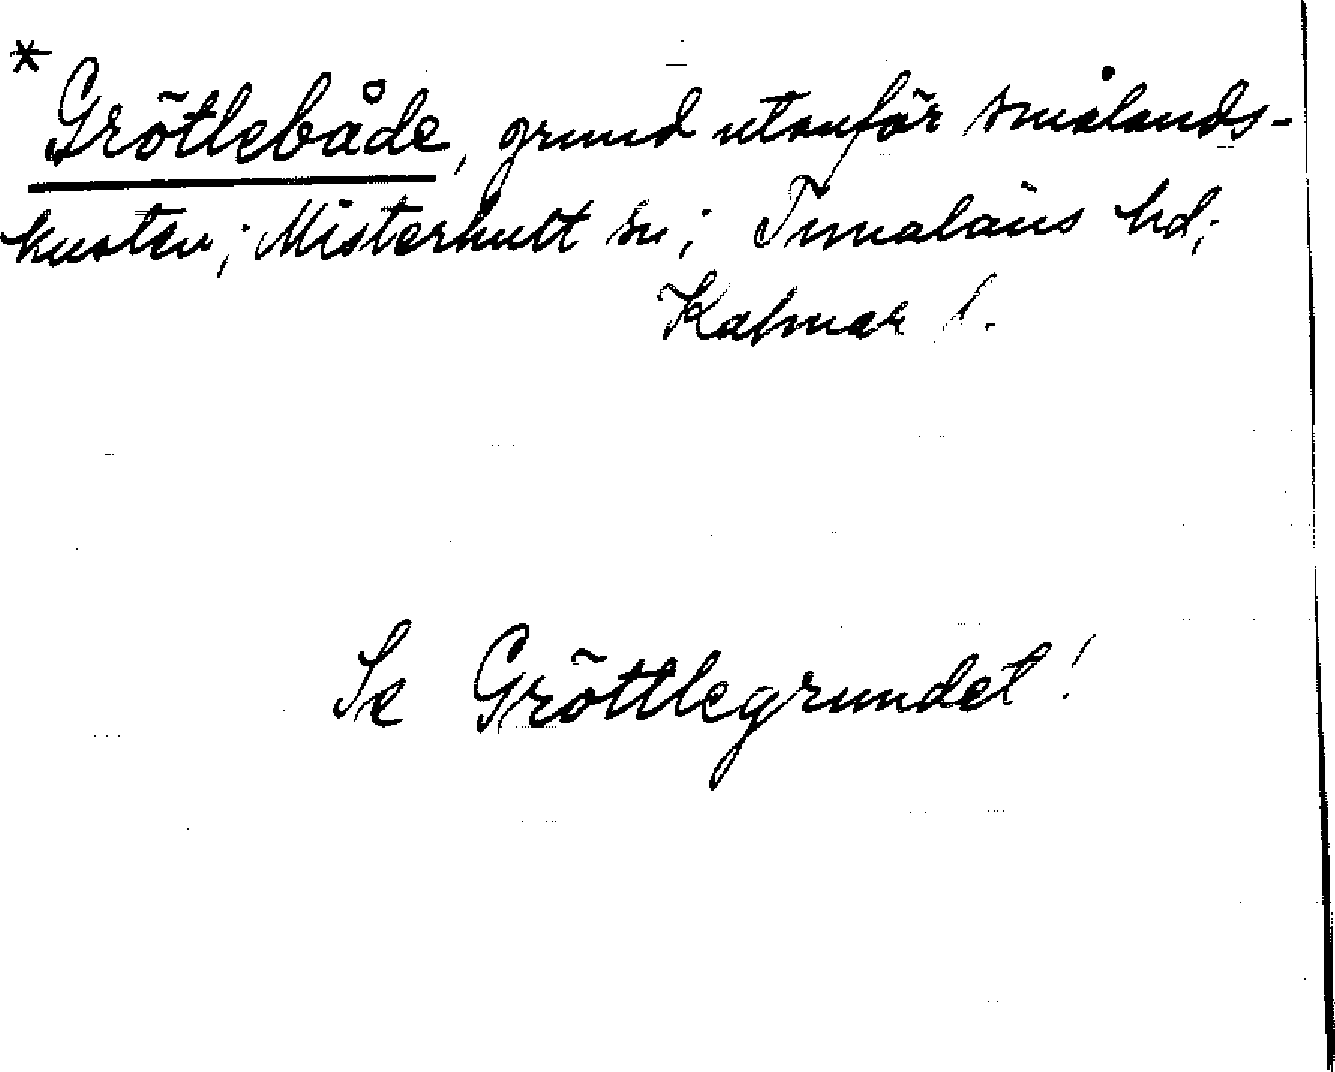 * Grötlebåde, grund utanför smålands-
kusten; Misterhult sn; Tunaläns hd;
Kalmar l.
Se Gröttlegrundet!